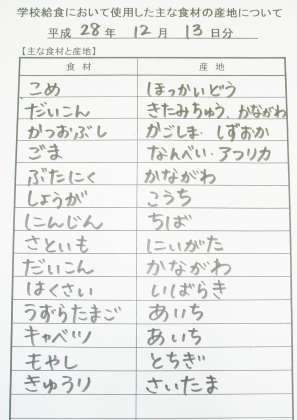 学校給食において使用した主な食材の産地について
平成 28 年 12 月 13 日分
【主な食材と産地】
食材 産地
こめ ほっかいどう
だいこん きたみちゅう、かながわ
かつおぶし かごしま・しずおか
ごま なんべい・アフリカ
ぶたにく かながわ
しょうが こうち
にんじん ちば
さといも にいがた
だいこん かながわ
はくさい いばらき
うずらたまご あいち
キャベツ あいち
もやし とちぎ
きゅうり さいたま